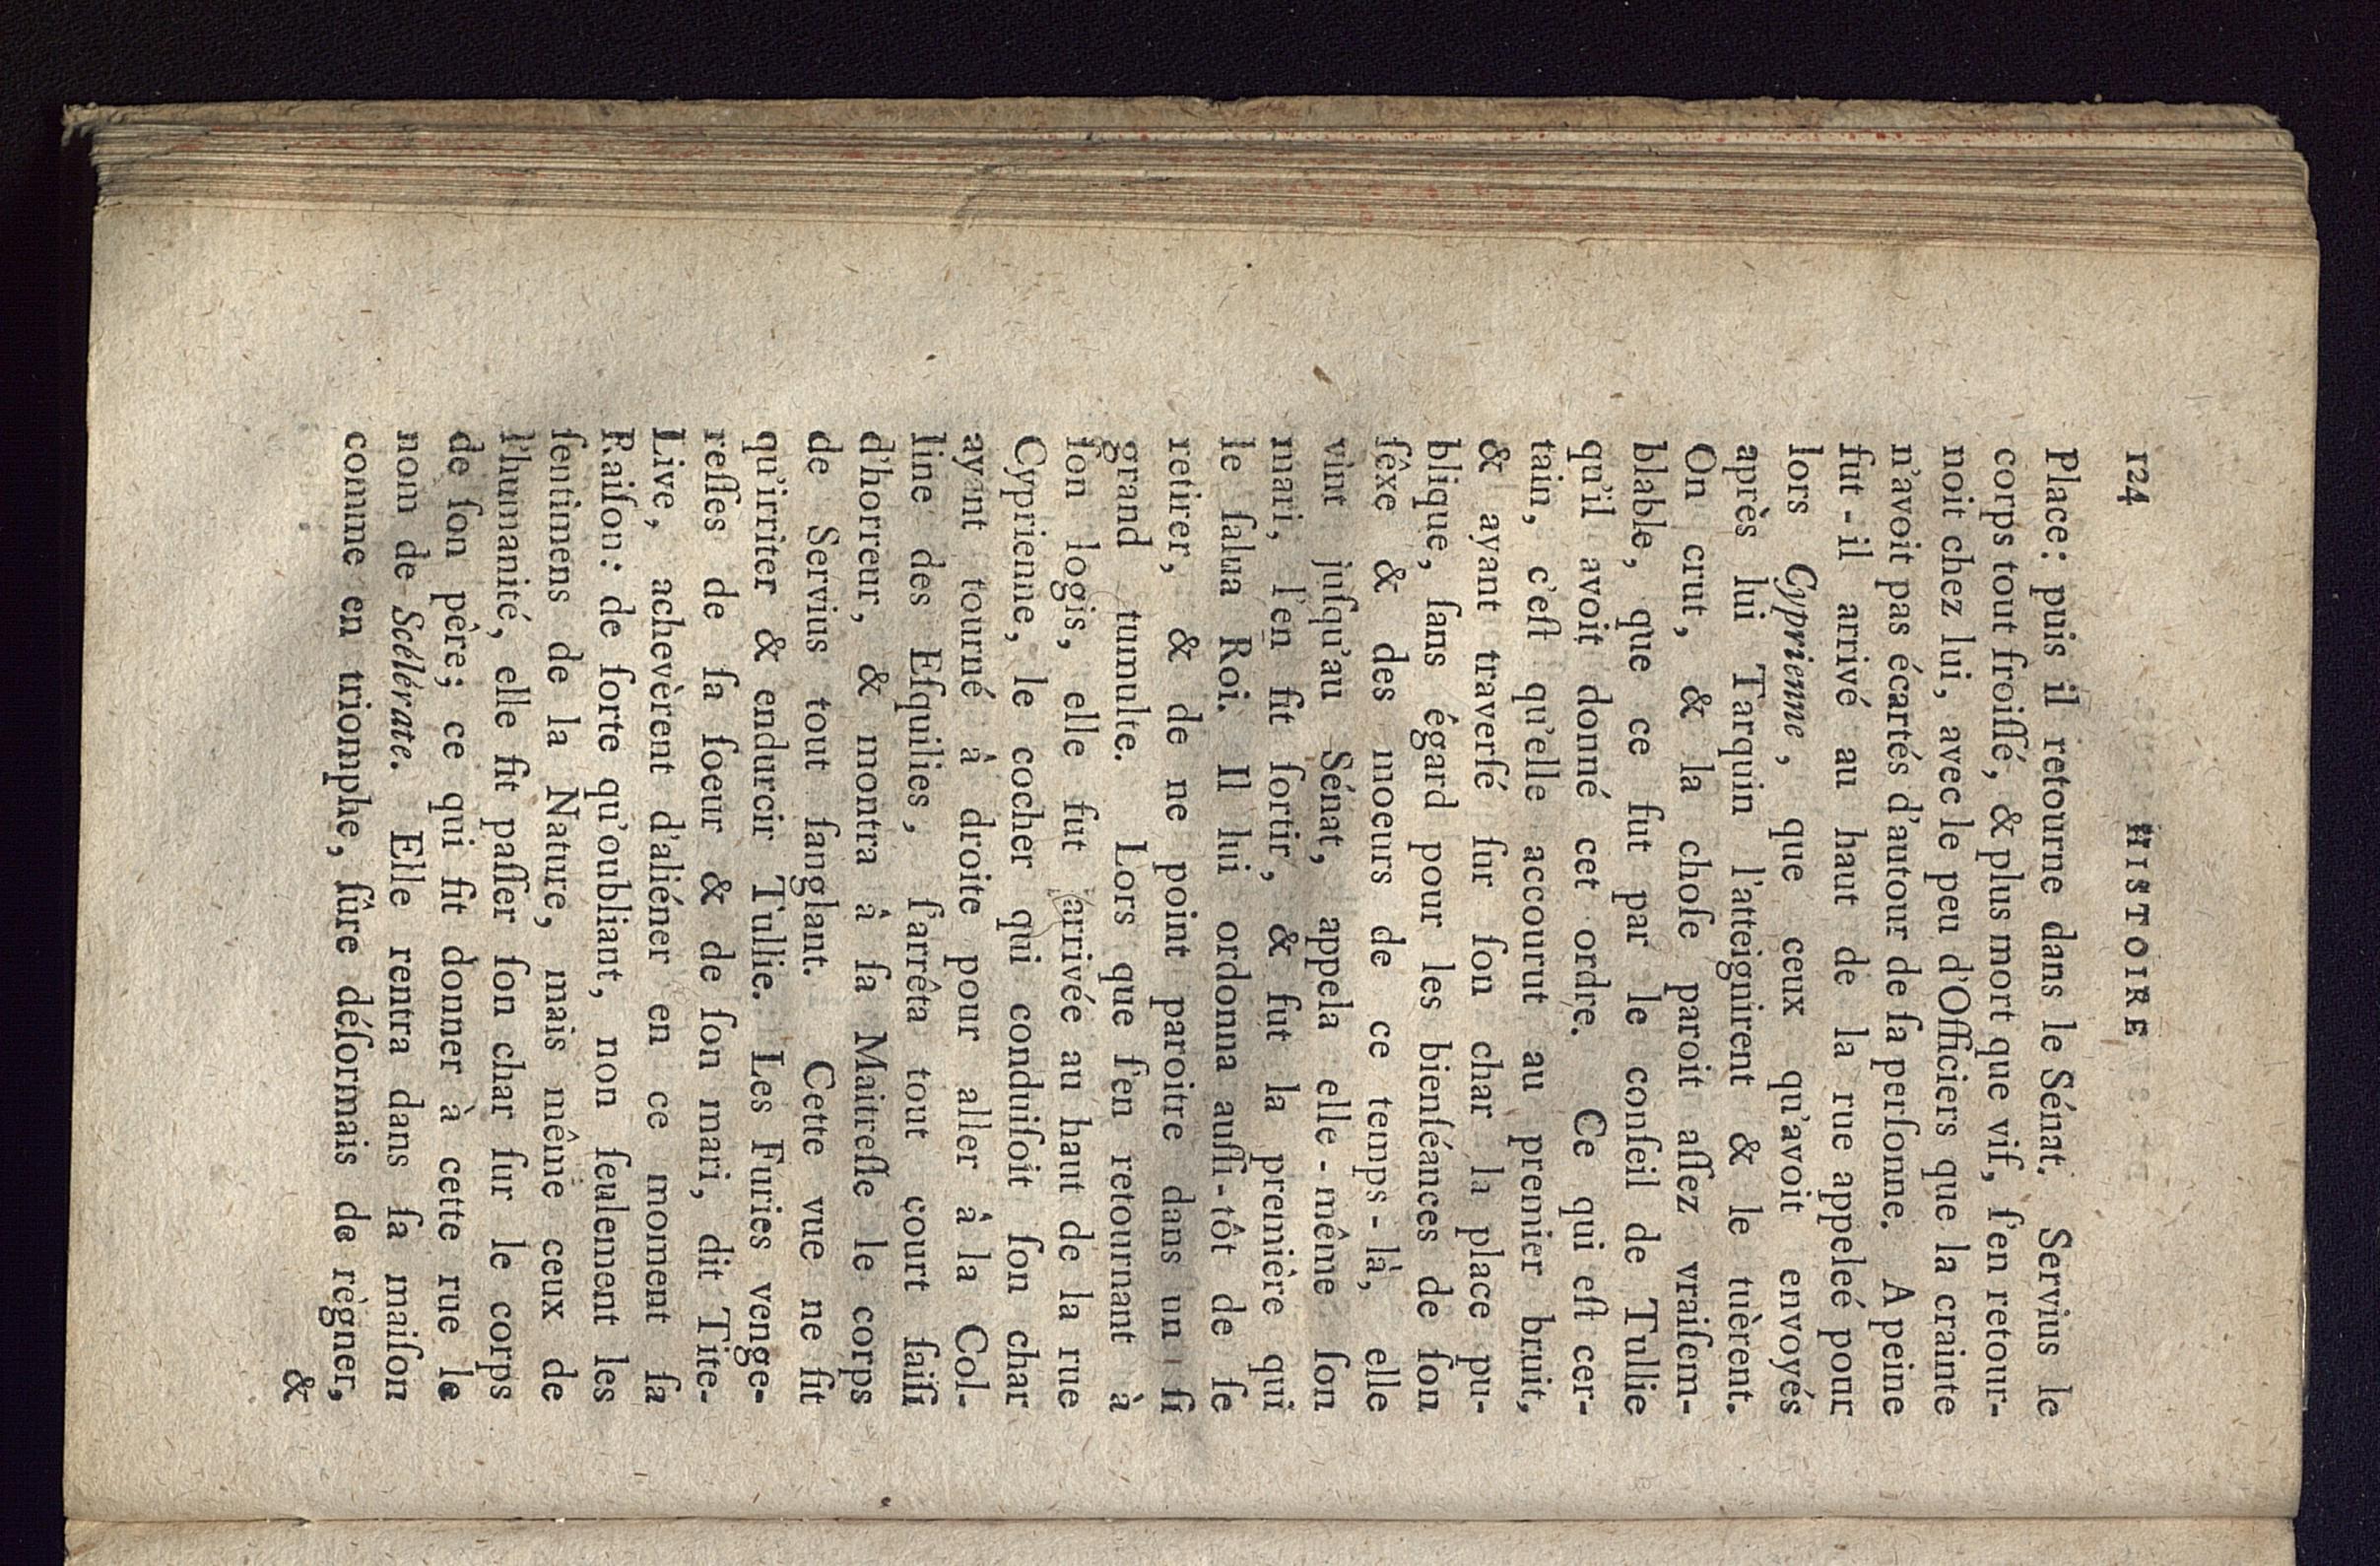 124 HISTOIRE
Place: puis il retourne dans le Sénat. Servius le
corps tout froiſſé, & plus mort que vif, ſ'en retour-
noit chez lui, avec le peu d'Officiers que la crainte
n'avoit pas écartés d'autour de ſa perſonne. A peine
fut-il arrivé au haut de la rue appeleé pour
lors Cyprienne, que ceux qu'avoit envoyés
après lui Tarquin l'atteignirent & le tuèrent.
On crut, & la choſe paroit aſſez vraiſem-
blable, que ce fut par le conſeil de Tullie
qu'il avoit donné cet ordre. Ce qui eſt cer-
tain, c'eſt qu'elle accourut au premier bruit,
& ayant traverſé ſur ſon char la place pu-
blique, ſans égard pour les bienſéances de ſon
ſêxe & des moeurs de ce temps-là, elle
vint juſqu'au Sénat, appela elle-même ſon
mari, l'en fit ſortir, & fut la première qui
le ſalua Roi. Il lui ordonna auſſi-tôt de ſe
retirer, & de ne point paroitre dans un ſi
grand tumulte. Lors que ſ'en retournant à
ſon logis, elle fut arrivée au haut de la rue
Cyprienne, le cocher qui conduiſoit ſon char
ayant tourné à droite pour aller à la Col-
line des Eſquilies, ſ'arrêta tout court ſaiſi
d'horreur, & montra à ſa Maitreſſe le corps
de Servius tout ſanglant. Cette vue ne fit
qu'irriter & endurcir Tullie. Les Furies venge-
reſſes de ſa ſoeur & de ſon mari, dit Tite-
Live, achevèrent d'aliéner en ce moment ſa
Raiſon: de ſorte qu'oubliant, non ſeulement les
ſentimens de la Nature, mais même ceux de
l'humanité, elle fit paſſer ſon char ſur le corps
de ſon père; ce qui fit donner à cette rue le
nom de Scélérate. Elle rentra dans ſa maiſon
comme en triomphe, ſûre déſormais de règner,
&